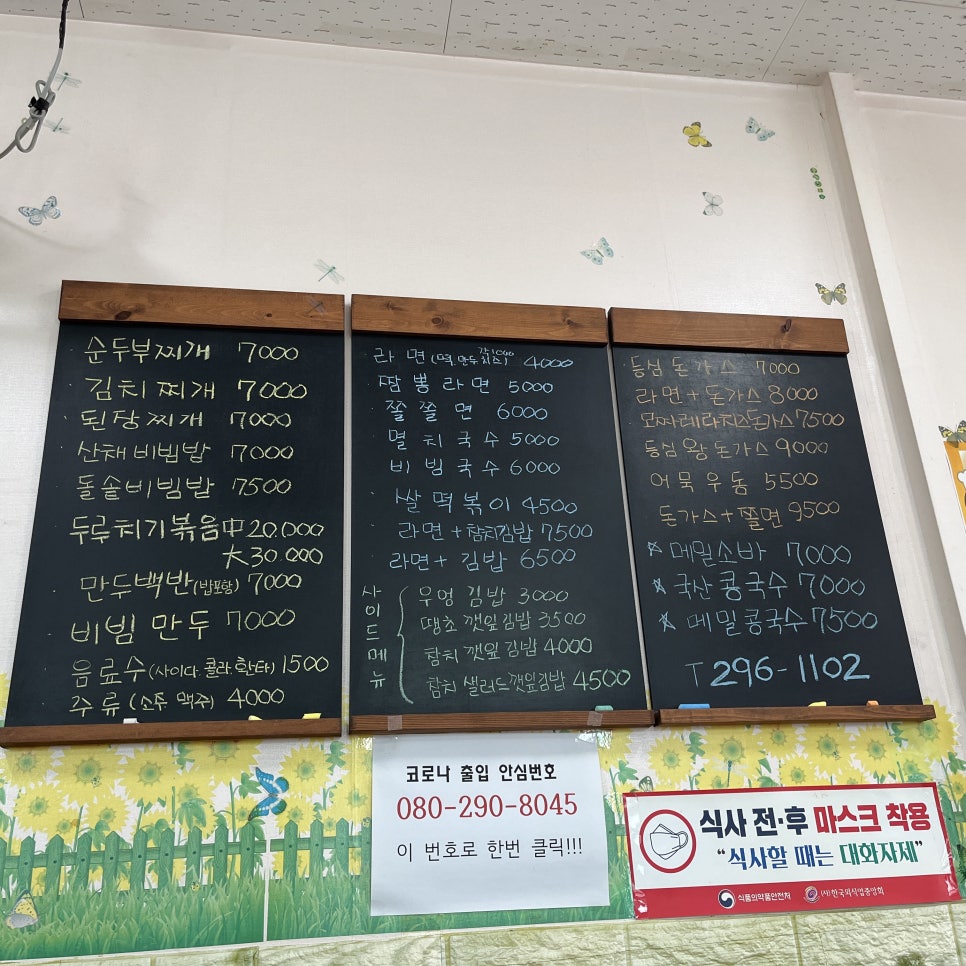 순두부찌개 7000
김치찌개 7000
된장찌개 7000
산채비빔밥 7000
돌솥비빔밥 7500
두루치기볶음中 20.000
大 30.000
만두백반(밥포함) 7000
비빔만두 7000
음료수(사이다.콜라.환타) 1500
주류 (소주 맥주) 4000
라면(떡.만두.치즈) 각1000 4000
짬뽕라면 5000
쫄쫄면 6000
멸치국수 5000
비빔국수 6000
쌀떡볶이 4500
라면+참치김밥 7500
라면+김밥 6500
사이드메뉴
우엉김밥 3000
땡초깻잎김밥 3500
참치깻잎김밥 4000
참치샐러드깻잎김밥 4500
등심돈가스 7000
라면+돈가스 8000
모짜레라치즈돈가스 7500
등심왕돈가스 9000
어묵우동 5500
돈가스+쫄면 9500
☆메밀소바 7000
☆국산콩국수 7000
☆메밀콩국수 7500
T 296-1102
코로나 출입 안심번호
080-290-8045
이 번호로 한번 클릭!!!
식사 전·후 마스크 착용
"식사할 때는 대화자제"
식품의약품안전처 (사)한국외식업중앙회